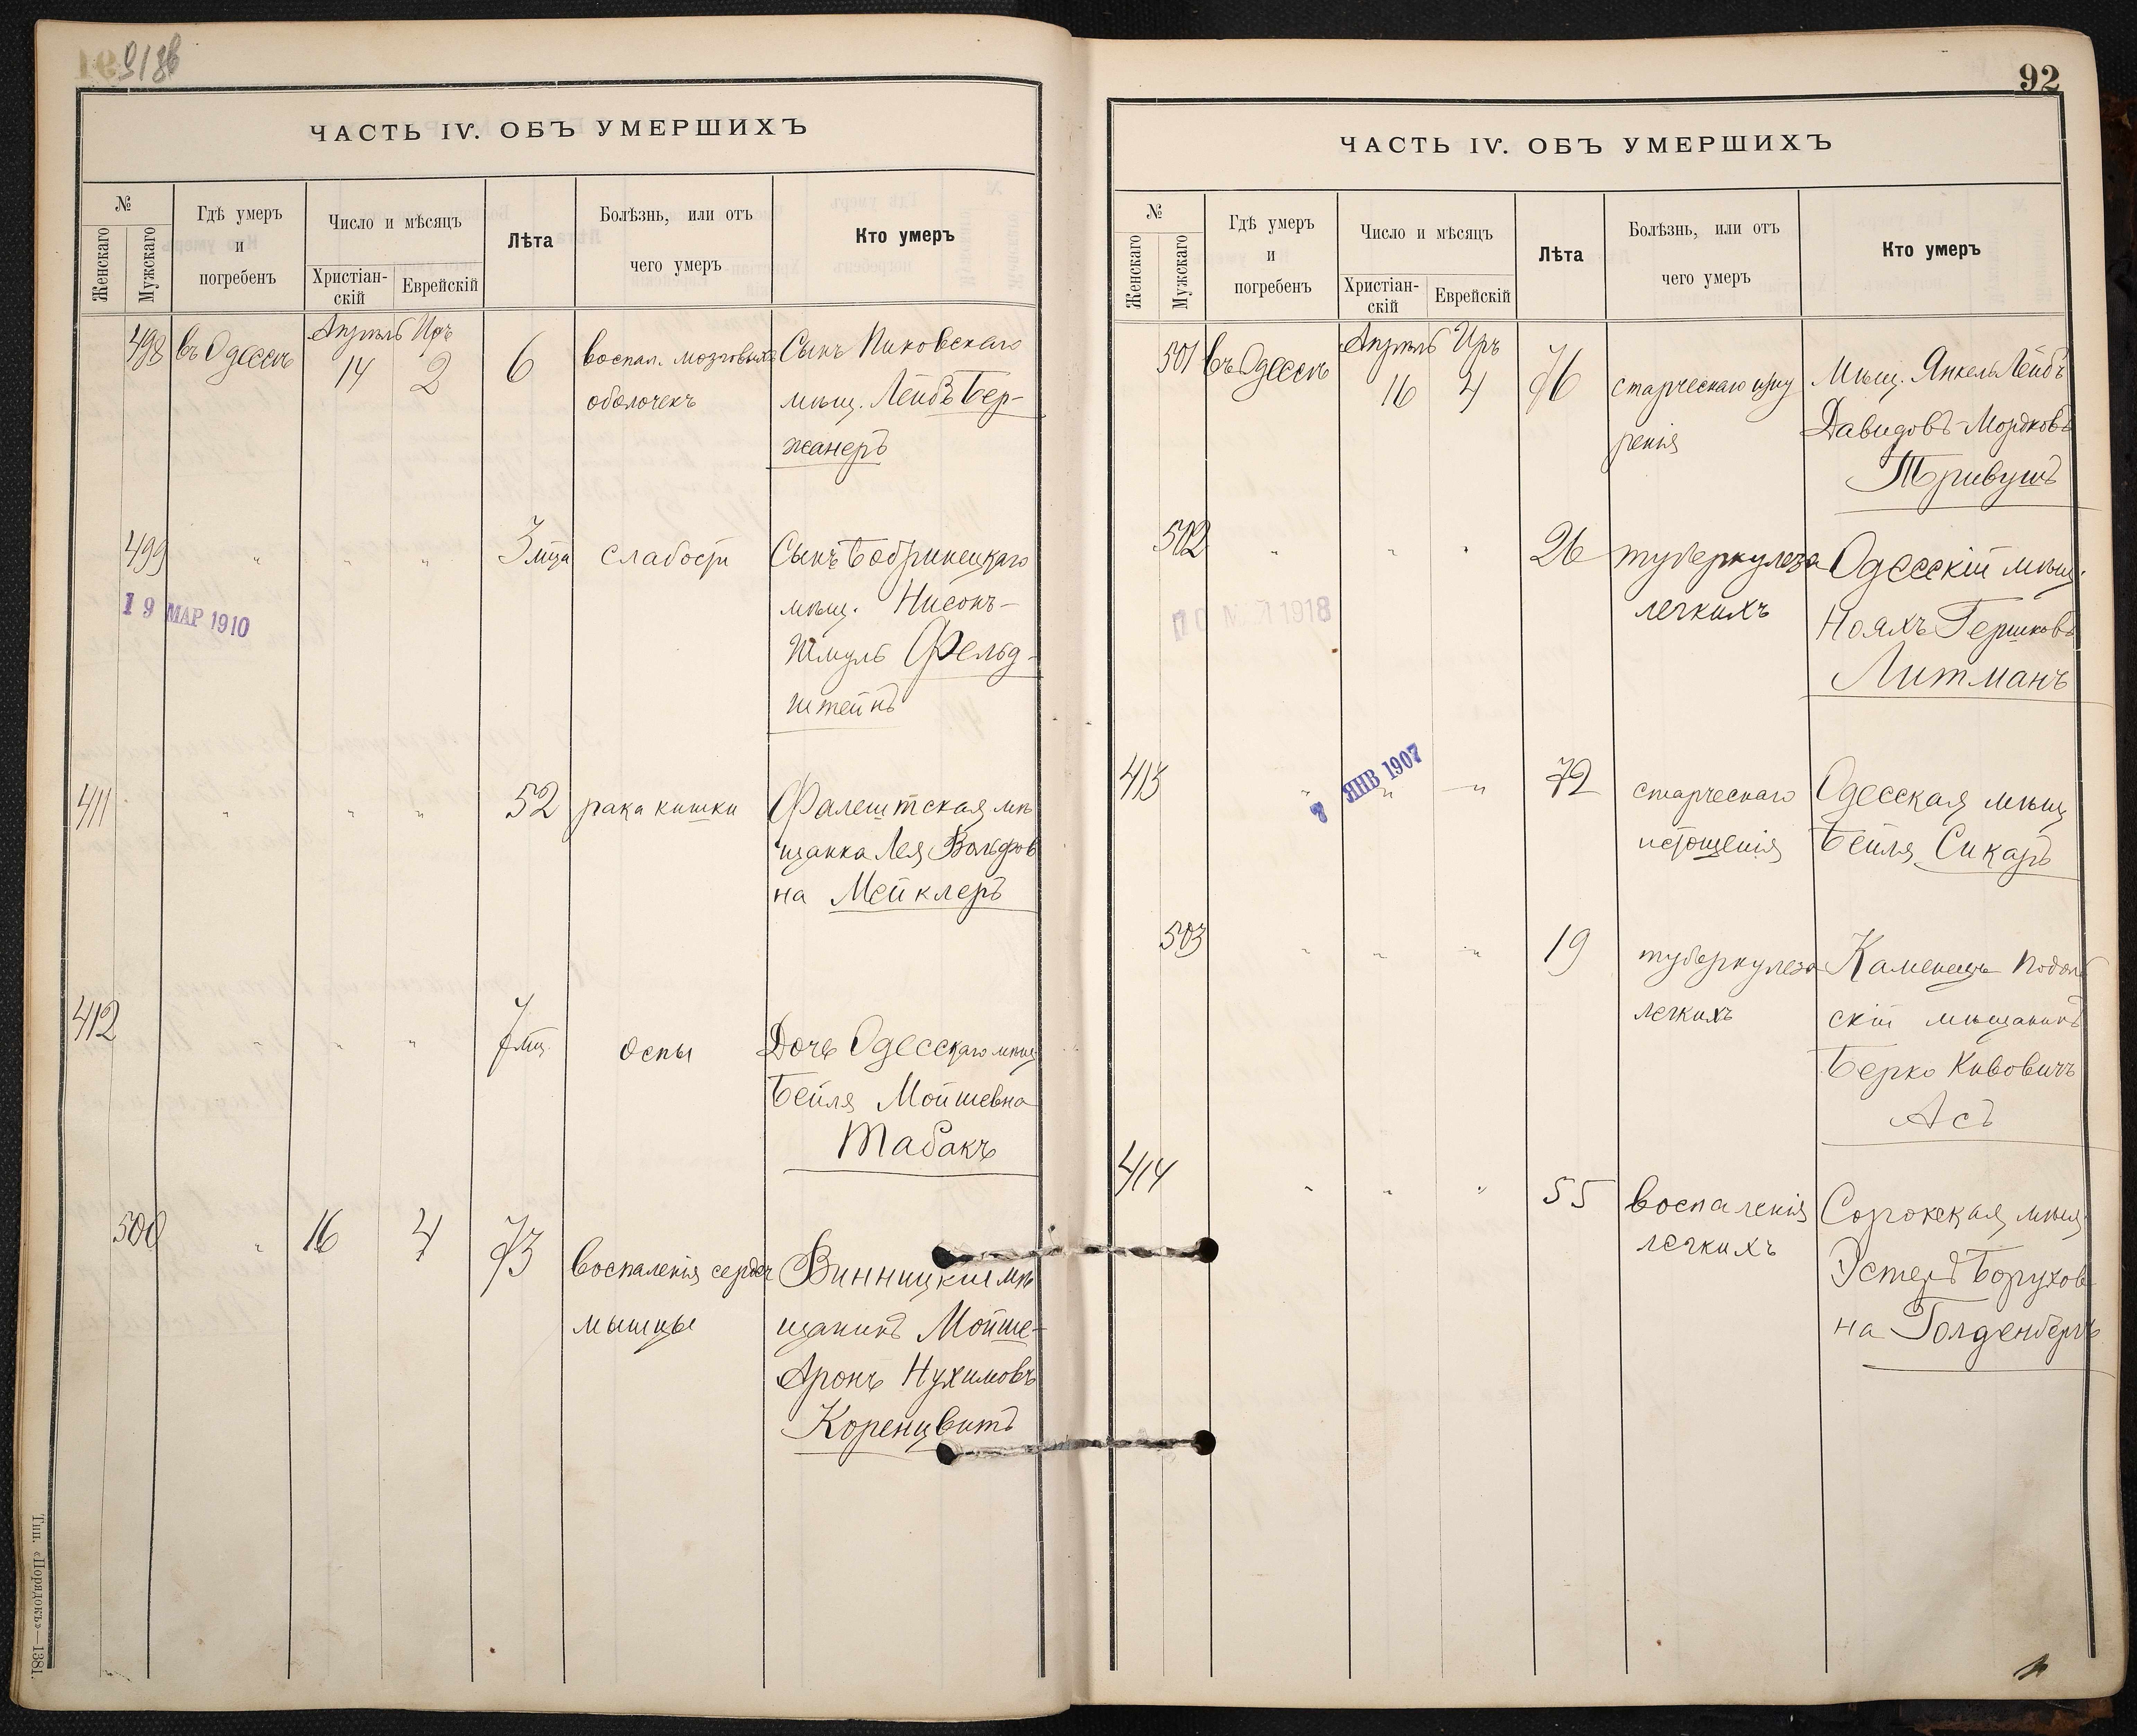 91 об
ЧАСТЬ IV. ОБЪ УМЕРШИХЪ
№
Женскаго
Мужскаго
Гдѣ умеръ
и
погребенъ
Число и мѣсяцъ
Христіан-
скій
Еврейскій
Лѣта
Болѣзнь, или отъ
чего умеръ
Кто умеръ
498 въ Одессѣ Апрѣль 14 Иръ 2 6 воспал. мозговыхъ Сынъ Пиковскаго
оболочекъ мѣщ. Лейбъ Бер-
жанеръ
499 " " " 3 м-ца слабости Сынъ Бобринецкаго
19 МАР 1910
мѣщ. Нисонъ-
Шмуль Фельд-
штейнъ
411 " " " 52 рака кишки Фалештская мѣ
щанка Лея Вольфов
на Мейклеръ
412 " " " 7 мц. оспы Дочь Одесскаго мѣщ
Бейля Мойшевна
Табакъ
500 " 16 4 73 воспаленія сердеч Винницкій мѣ
мышцы щанинъ Мойше-
Аронъ Нухимовъ
Коренцвитъ
Тип. «Порядокъ»—1381.
92
ЧАСТЬ IV. ОБЪ УМЕРШИХЪ
№
Женскаго
Мужскаго
Гдѣ умеръ
и
погребенъ
Число и мѣсяцъ
Христіан-
скій
Еврейскій
Лѣта
Болѣзнь, или отъ
чего умеръ
Кто умеръ
501 въ Одессѣ Апрѣль 16 Иръ 4 76 старческаго изну Мѣщ. Янкель Лейбъ
ренія Давидовъ-Мордковъ
Тривушъ
502 " " " 26 туберкулеза Одесскій мѣщ.
легкихъ Нояхъ Гершковъ
1918
Литманъ
413 " " " 72 старческаго Одесская мѣщ
7 ЯНВ 1907
истощенія Бейля Сикаръ
503 " " " 19 туберкулеза Каменецъ Подоль
легкихъ скій мѣщанинъ
Берко Кивовичъ
Асъ
414 " " " 55 воспаленія Сорокская мѣщ.
легкихъ Эстеръ Борухов
на Голденбергъ